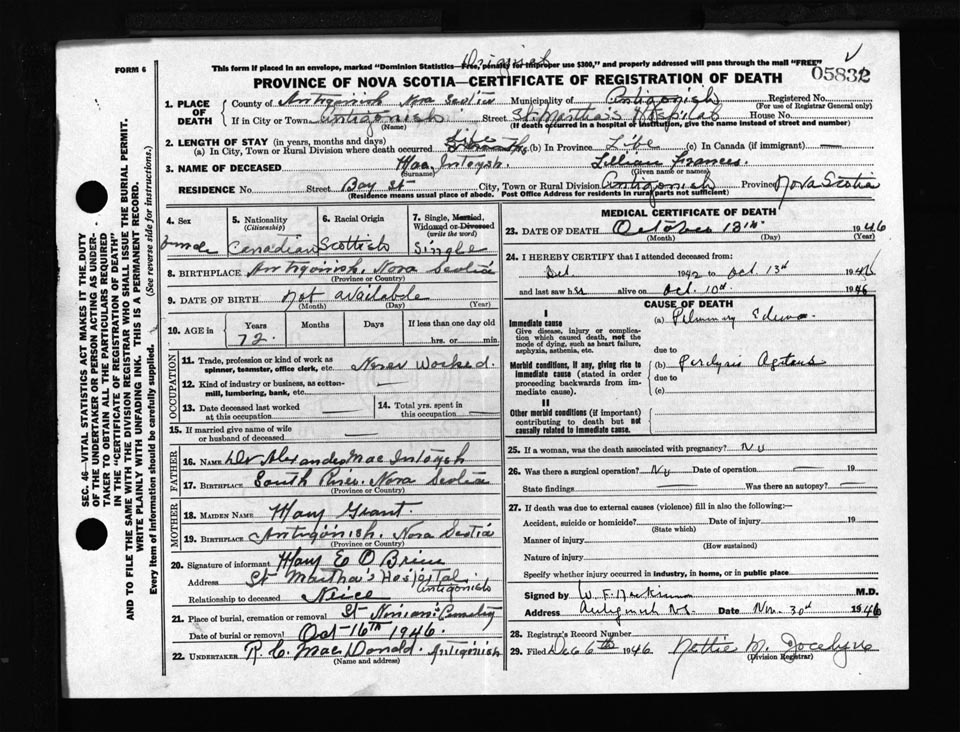 FORM 6
This form if placed in an envelope, marked "Dominion Statistics—Free, penalty for improper use $300," and properly addressed will pass through the mail "FREE"
05832
PROVINCE OF NOVA SCOTIA—CERTIFICATE OF REGISTRATION OF DEATH
1. PLACE OF DEATH
County of Antigonish Nova Scotia Municipality of Antigonish Registered No.
(For use of Registrar General only)
If in City or Town Antigonish Street St. Martha's Hospital House No.
(Name) (If death occurred in a hospital or institution, give the name instead of street and number)
2. LENGTH OF STAY (in years, months and days)
(a) In City, Town or Rural Division where death occurred Life (b) In Province Life (c) In Canada (if immigrant) —
3. NAME OF DECEASED MacIntosh Lillian Frances.
(Surname) (Given name or names)
RESIDENCE No. Street Bay St City, Town or Rural Division Antigonish Province Nova Scotia
(Residence means usual place of abode. Post Office Address for residents in rural parts not sufficient)
4. Sex
5. Nationality (Citizenship) Canadian
6. Racial Origin Scottish
7. Single, Married, Widowed or Divorced (write the word) Single
8. BIRTHPLACE Antigonish, Nova Scotia
(Province or Country)
9. DATE OF BIRTH Not available
(Month) (Day) (Year)
10. AGE in Years 72 Months Days If less than one day old hrs. or min.
OCCUPATION
11. Trade, profession or kind of work as spinner, teamster, office clerk, etc. Never Worked.
12. Kind of industry or business, as cotton-mill, lumbering, bank, etc. —
13. Date deceased last worked at this occupation —
14. Total yrs. spent in this occupation —
15. If married give name of wife or husband of deceased —
FATHER
16. NAME Dr Alexander MacIntosh
17. BIRTHPLACE South River Nova Scotia
(Province or Country)
MOTHER
18. MAIDEN NAME Mary Grant.
19. BIRTHPLACE Antigonish, Nova Scotia
(Province or Country)
20. Signature of informant Mary E O'Brien
Address St Martha's Hospital Antigonish
Relationship to deceased Neice
21. Place of burial, cremation or removal St Ninians Cemetery
Date of burial or removal Oct 16th 1946.
22. UNDERTAKER R. C. MacDonald Antigonish
(Name and address)
MEDICAL CERTIFICATE OF DEATH
23. DATE OF DEATH October 13th 1946
(Month) (Day) (Year)
24. I HEREBY CERTIFY that I attended deceased from:
1942 to Oct 13th 1946
and last saw her alive on Oct. 10th 1946
CAUSE OF DEATH
I
Immediate cause
Give disease, injury or complication which caused death, not the mode of dying, such as heart failure, asphyxia, asthenia, etc.
(a) Pulmonary Edema
due to
Morbid conditions, if any, giving rise to immediate cause (stated in order proceeding backwards from immediate cause).
(b) Paralysis Agitans
due to
(c)
II
Other morbid conditions (if important) contributing to death but not causally related to immediate cause.
25. If a woman, was the death associated with pregnancy? No
26. Was there a surgical operation? No Date of operation — 19
State findings Was there an autopsy?
27. If death was due to external causes (violence) fill in also the following:—
Accident, suicide or homicide? Date of injury 19
(State which)
Manner of injury
(How sustained)
Nature of injury
Specify whether injury occurred in industry, in home, or in public place
Signed by W. F. M.D.
Address Antigonish N.S. Date Nov. 30th 1946
28. Registrar's Record Number
29. Filed Dec 6th 1946 Nettie M. Jocelyne
(Division Registrar)
SEC. 46—VITAL STATISTICS ACT MAKES IT THE DUTY
OF THE UNDERTAKER OR PERSON ACTING AS UNDER-
TAKER TO OBTAIN ALL THE PARTICULARS REQUIRED
IN THE "CERTIFICATE OF REGISTRATION OF DEATH"
AND TO FILE THE SAME WITH THE DIVISION REGISTRAR WHO SHALL ISSUE THE BURIAL PERMIT.
WRITE PLAINLY WITH UNFADING INK. THIS IS A PERMANENT RECORD.
Every item of information should be carefully supplied. (See reverse side for instructions.)